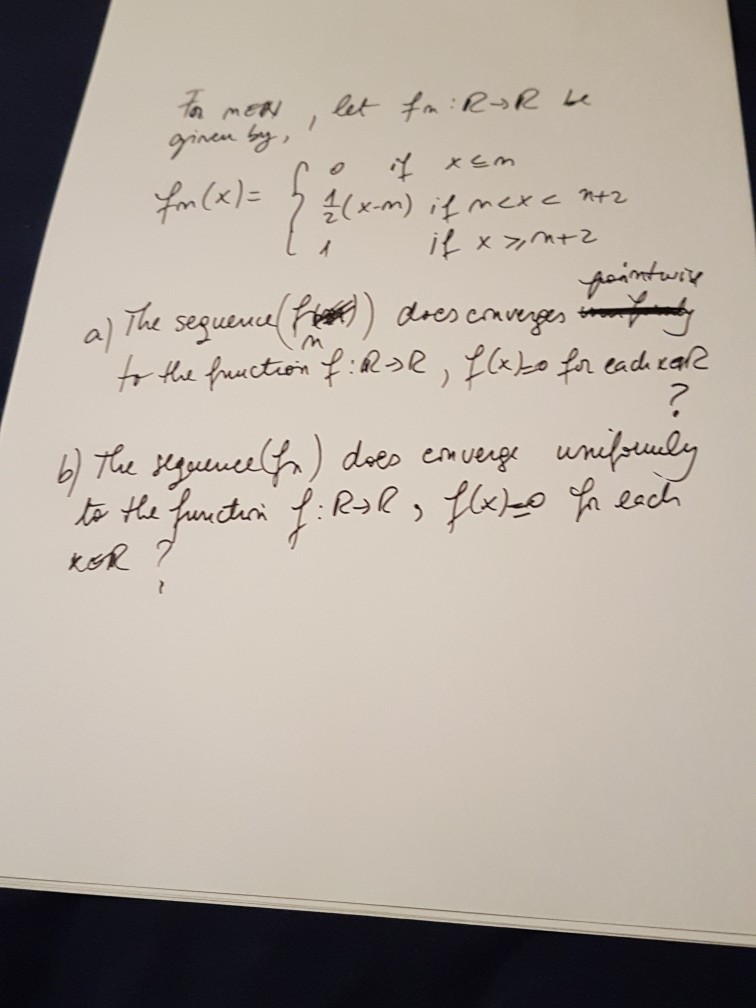 For n∈N, let fn : R→R be
given by,
fn(x) = { 0 if x ≤ n
1/2 (x-n) if n<x< n+2
1 if x ≥ n+2
pointwise
a) The sequence (fn) does converges
to the function f : R→R, f(x)=0 for each x∈R
?
b) The sequence (fn) does converge uniformly
to the function f : R→R, f(x)=0 for each
x∈R ?